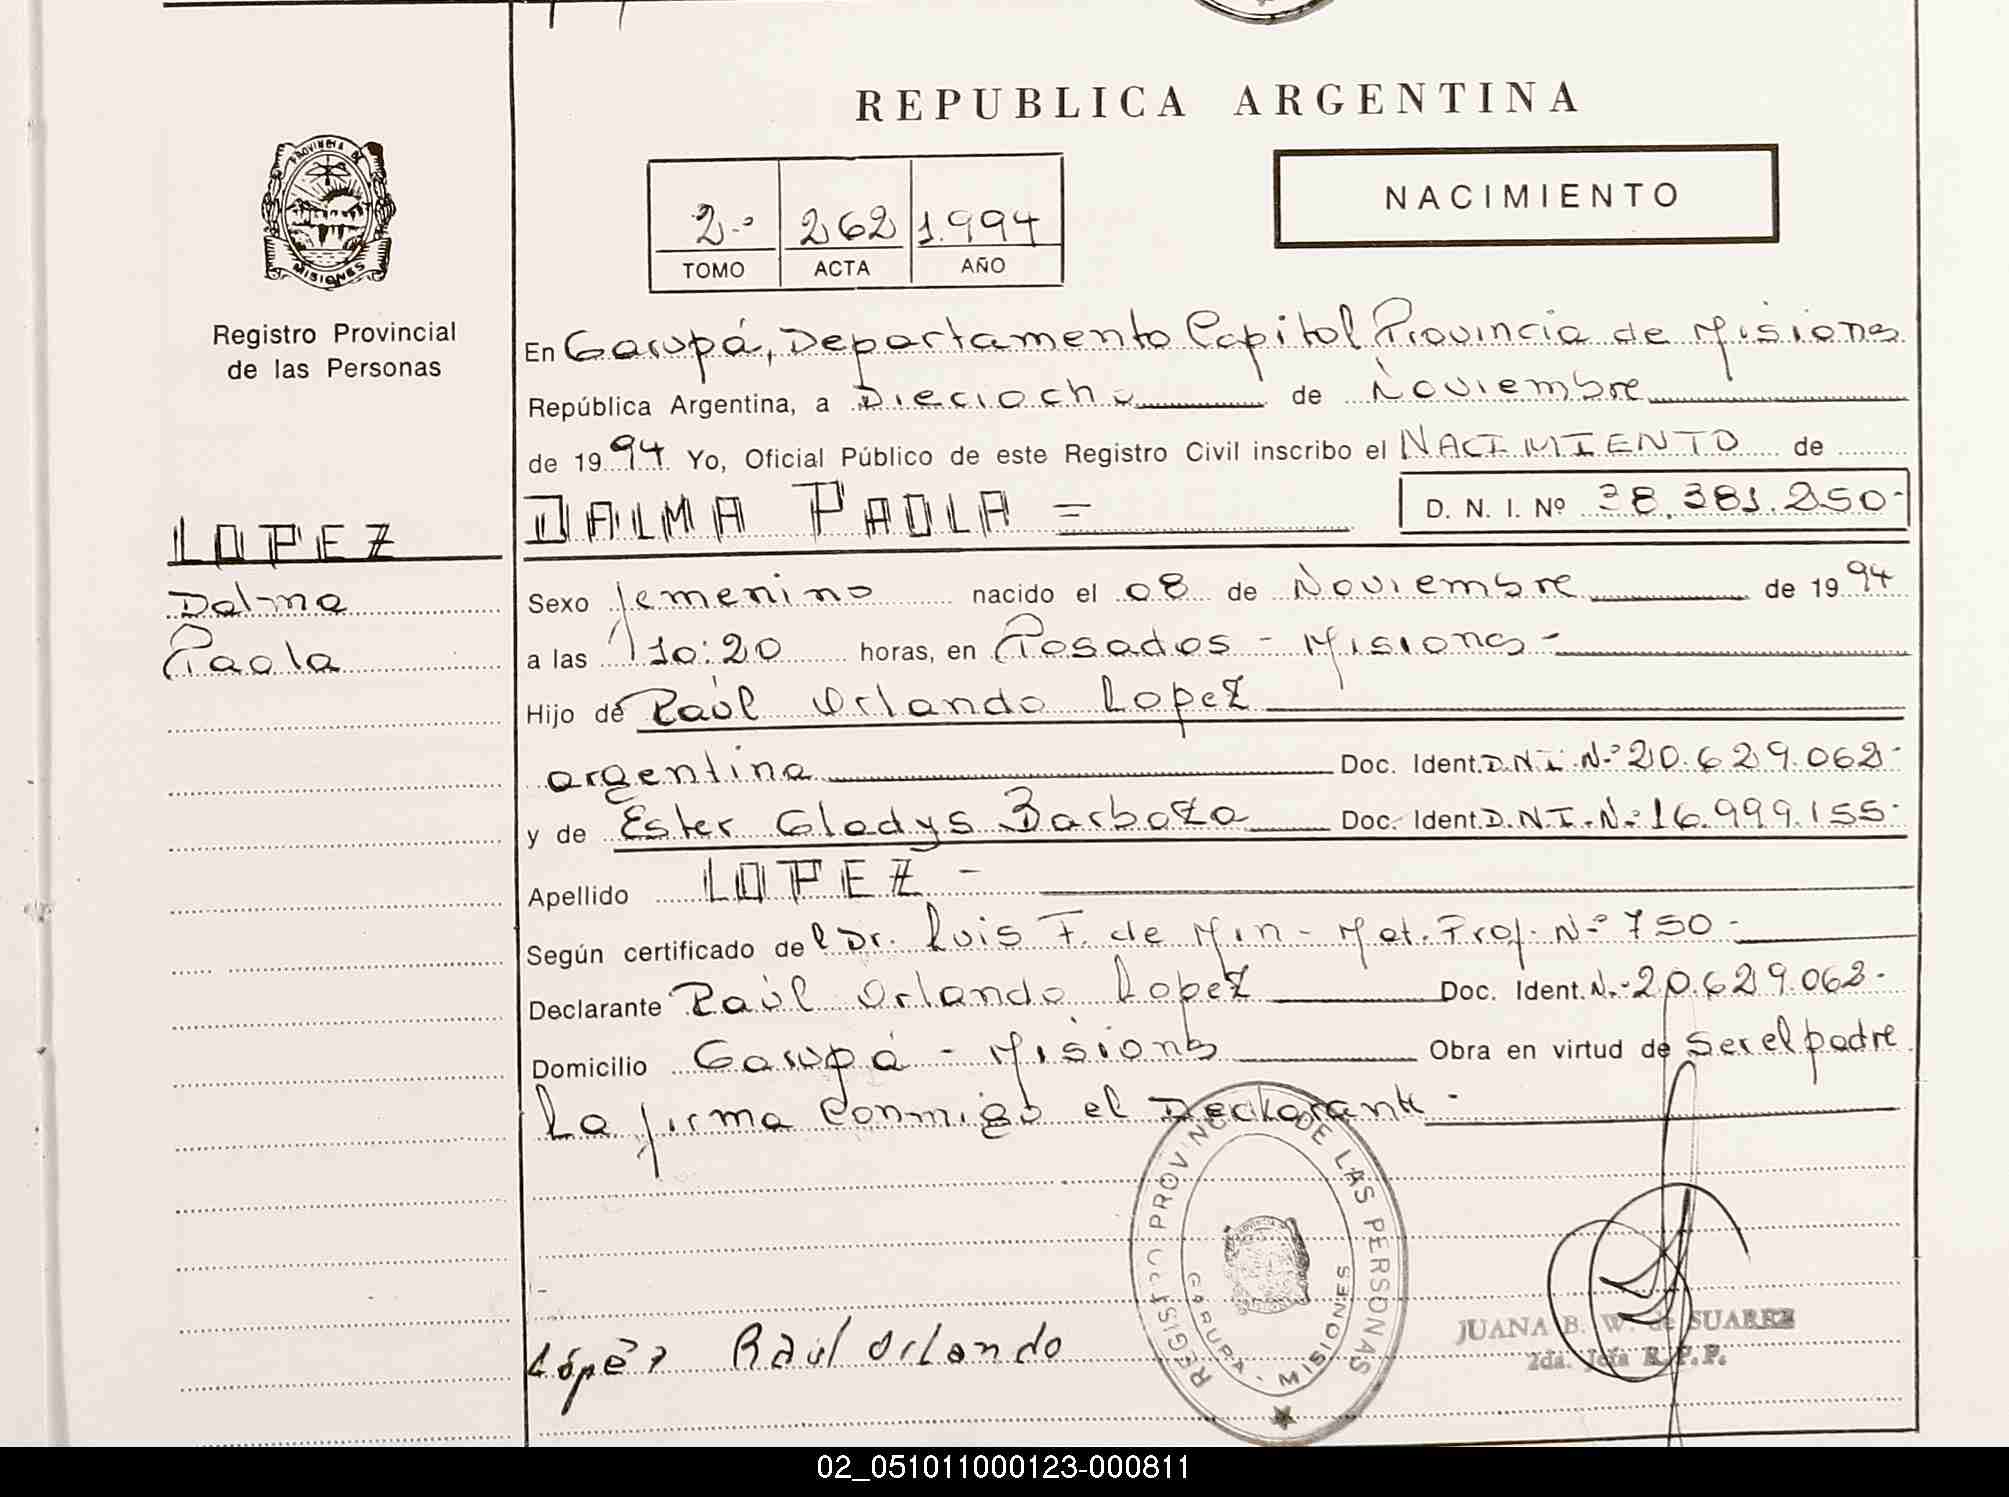 REPUBLICA ARGENTINA
PROVINCIA DE
MISIONES
Registro Provincial
de las Personas
2º 262 1.994
TOMO ACTA AÑO
NACIMIENTO
En Garupá, Departamento Capital Provincia de Misiones
República Argentina, a Dieciocho de Noviembre
de 1994 Yo, Oficial Público de este Registro Civil inscribo el NACIMIENTO de
LOPEZ
Dalma
Paola
DALMA PAOLA =
D. N. I. Nº 38.381.250-
Sexo femenino nacido el 08 de Noviembre de 1994
a las 10:20 horas, en Posadas - Misiones -
Hijo de Raúl Orlando Lopez
argentina Doc. Ident. D.N.I. Nº 20.629.062-
y de Ester Gladys Barboza Doc. Ident. D.N.I. Nº 16.999.155-
Apellido LOPEZ -
Según certificado del Dr. Luis F. de Min - Mat. Prof. Nº 750-
Declarante Raúl Orlando Lopez Doc. Ident. Nº 20.629.062-
Domicilio Garupá - Misiones Obra en virtud de ser el padre
La firma conmigo el Declarante -
REGISTRO PROVINCIAL DE LAS PERSONAS
GARUPA - MISIONES
Lópéz Raúl Orlando
JUANA B. W. de SUAREZ
2da. Jefa R.P.P.
02_051011000123-000811